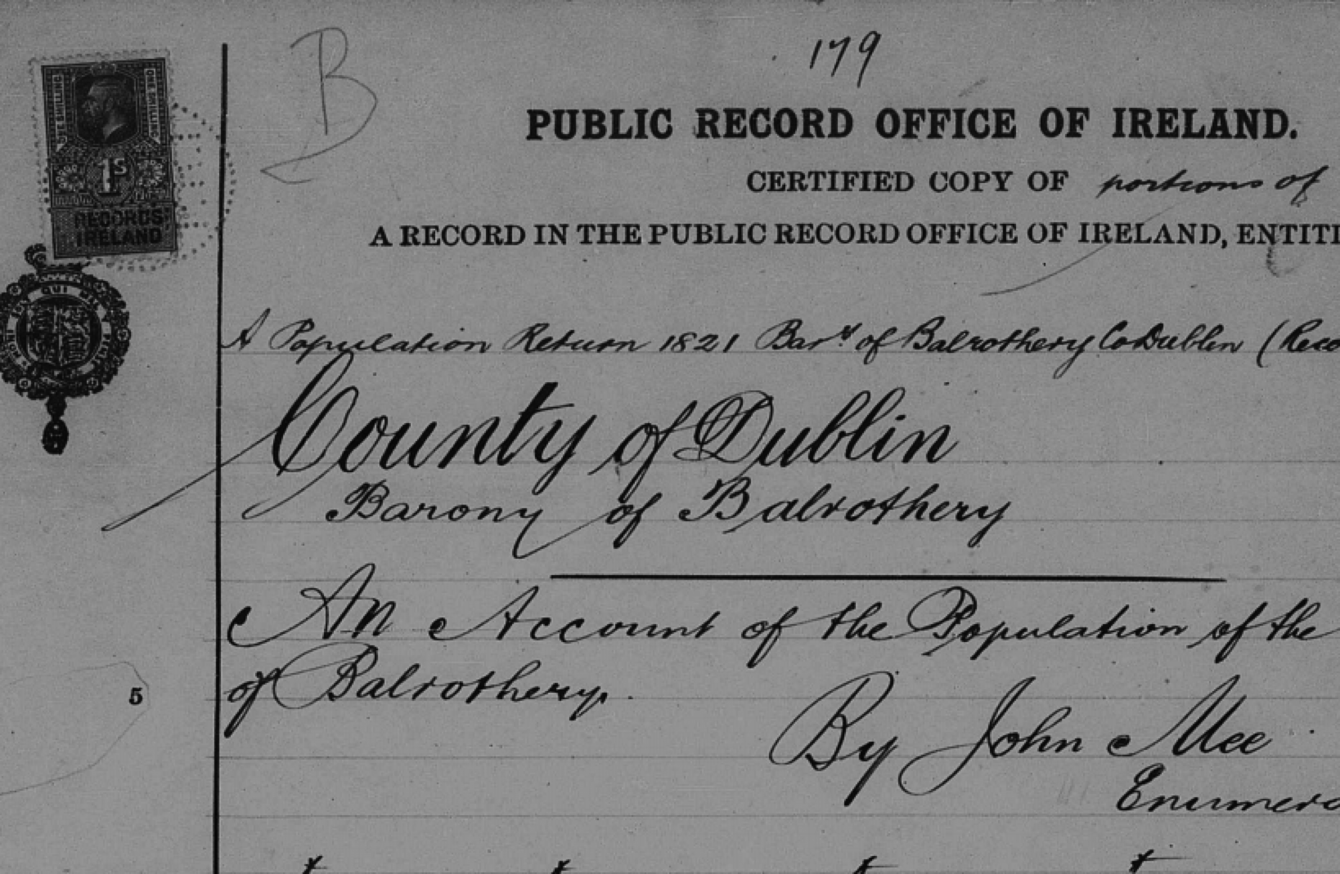 179
B
ONE SHILLING
ONE SHILLING
1s
RECORDS
IRELAND
PUBLIC RECORD OFFICE OF IRELAND.
CERTIFIED COPY OF portions of
A RECORD IN THE PUBLIC RECORD OFFICE OF IRELAND, ENTITL
A Population Return 1821 Bary of Balrothery Co Dublin (Reco
County of Dublin
Barony of Balrothery
An Account of the Population of the
of Balrothery.
5
By John Mee
Enumera